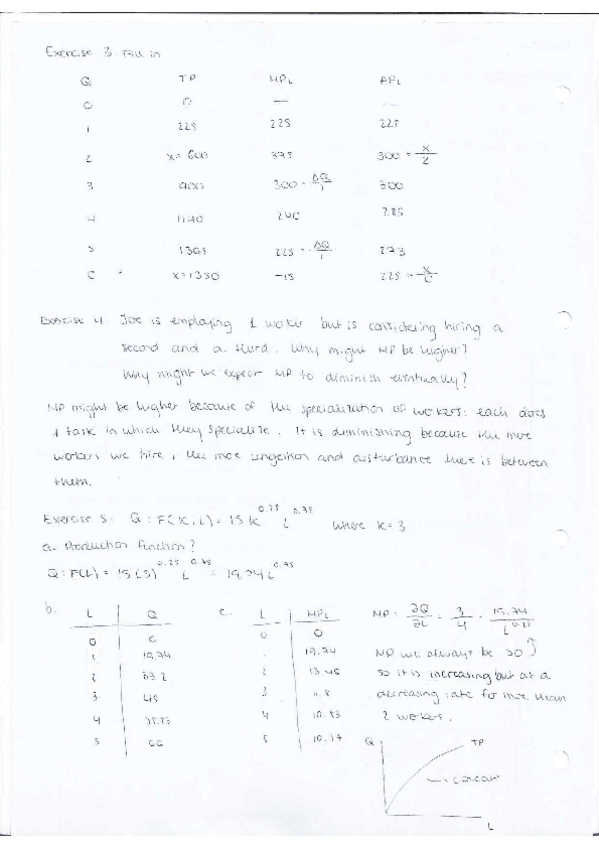 Exercise 3. Fill in
Q TP MPL APL
0 0 — —
1 225 225 225
2 x = 600 375 300 = x/2
3 900 300 = ΔQ/1 300
4 1140 240 285
5 1365 225 = ΔQ/1 273
6 x = 1350 -15 225 = x/6
Exercise 4. Joe is employing 1 woker but is considering hiring a
second and a third. Why might MP be higher?
Why might we expect MP to diminish eventually?
MP might be higher because of the specialization of workers: each does
1 task in which they specialize. It is diminishing because the more
workers we hire, the more congestion and disturbance there is between
them.
Exercise 5. Q = F(K, L) = 15 K^0.25 L^0.75 where K = 3
a. Production function?
Q = F(L) = 15 (3)^0.25 L^0.75 = 19.74 L^0.75
b. L Q
0 0
1 19.74
2 33.2
3 45
4 55.83
5 66
c. L MPL
0 0
. 19.74
2 13.46
3 11.8
4 10.83
5 10.17
MP = ∂Q/∂L = 3/4 · 19.74/L^0.25
MP will always be >0
so it is increasing but at a
decreasing rate for more than
2 workers.
Q TP
concave
L